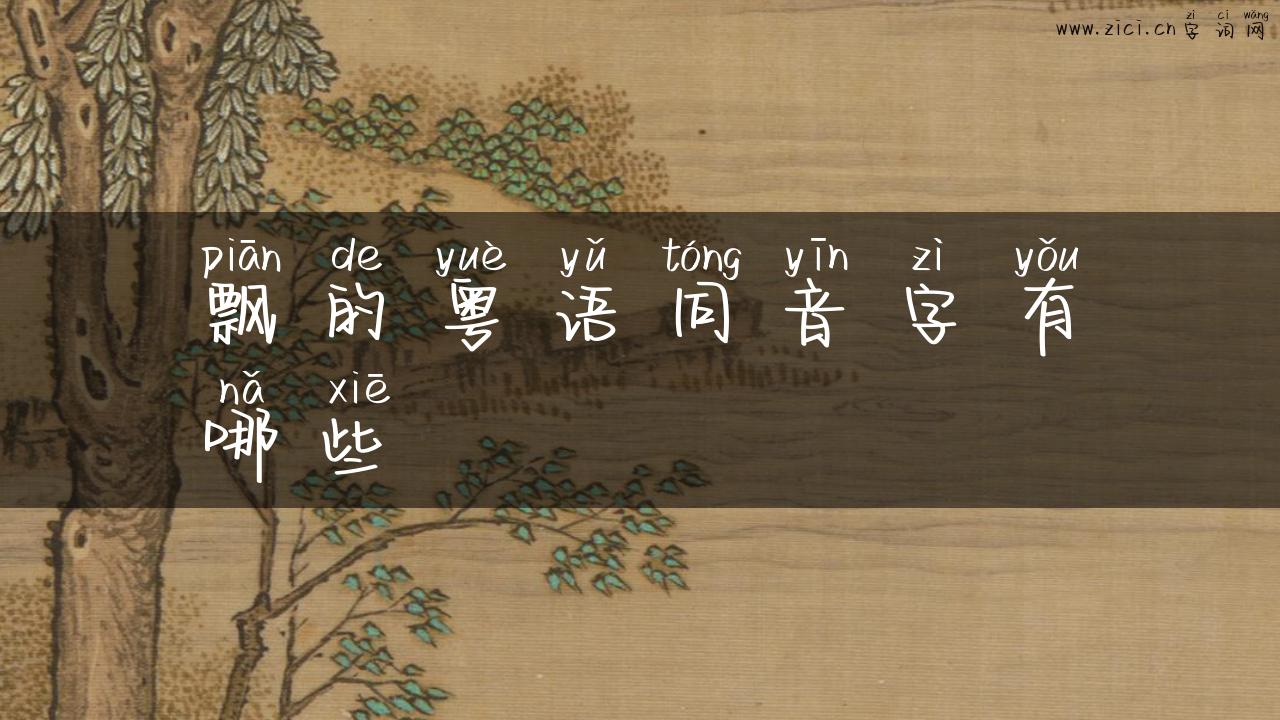 zì cí wǎng
www.zici.cn 字词网
piān de yuè yǔ tóng yīn zì yǒu
飘的粤语同音字有
nǎ xiē
哪些